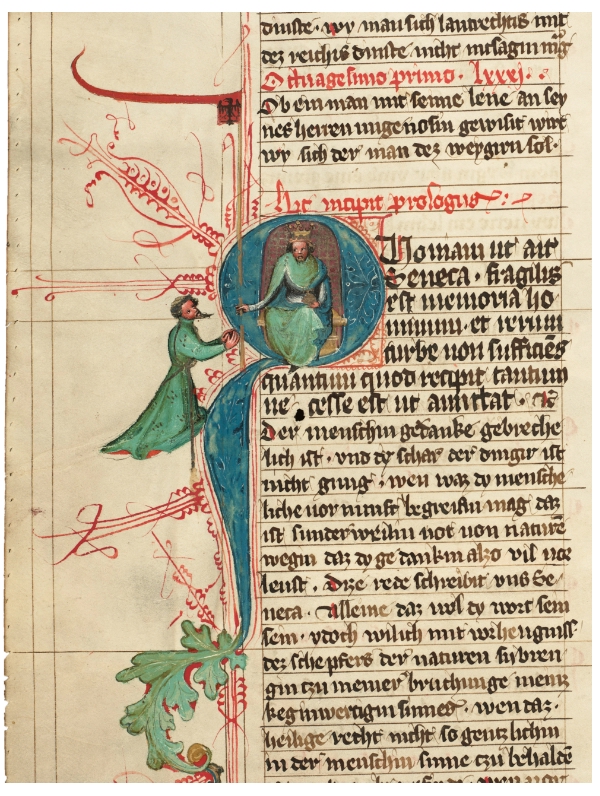 dinste · wy man sich lantrechtis mit
dez reichis dinste nicht intsagin mag
Octuagesimo primo · lxxxj ·
Ob ein man mit seime lene an sey
nes herren ungenosin gewisit wirt
wy sich der man dez weygirn sol ·
Hic incipit prologus ·
Quoniam ut ait
Seneca · fragilis
est memoria ho
minum · et rerum
turbe non sufficiēs
quantum quod recipit tantum
ne cesse est ut amittat ·
Der menschin gedanke gebreche
lich ist · vnd dy schar der dingir ist
nicht gnug · wen waz dy mensche
liche vornunft begreifin mag daz
ist sunder wenin not von naturē
wegin daz dy gedankin alzo vil vor
leust · Dize rede schreibit vns Se ·
neca · Alleine daz wol dy wort sein
sein · ydoch wilich mit vorhengniss
dez schepfers der naturen sy bren
gin czu meiner bruchunge meinz
keginwertigin sinnes · wen daz ·
heilige recht nicht so gentzlichin
in der menschin sinne czu behaldē